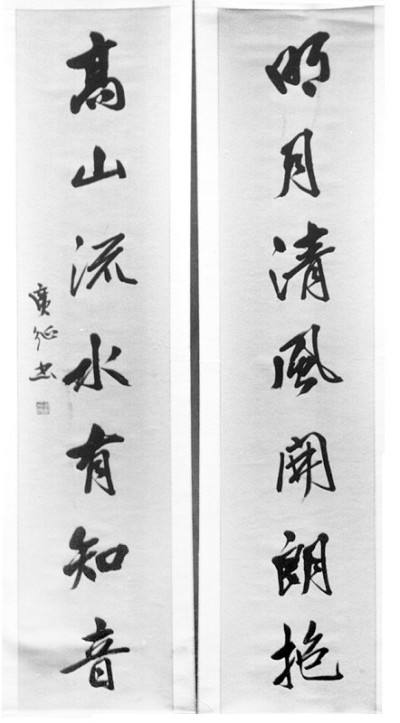 明月清風開朗抱
高山流水有知音
廣征书